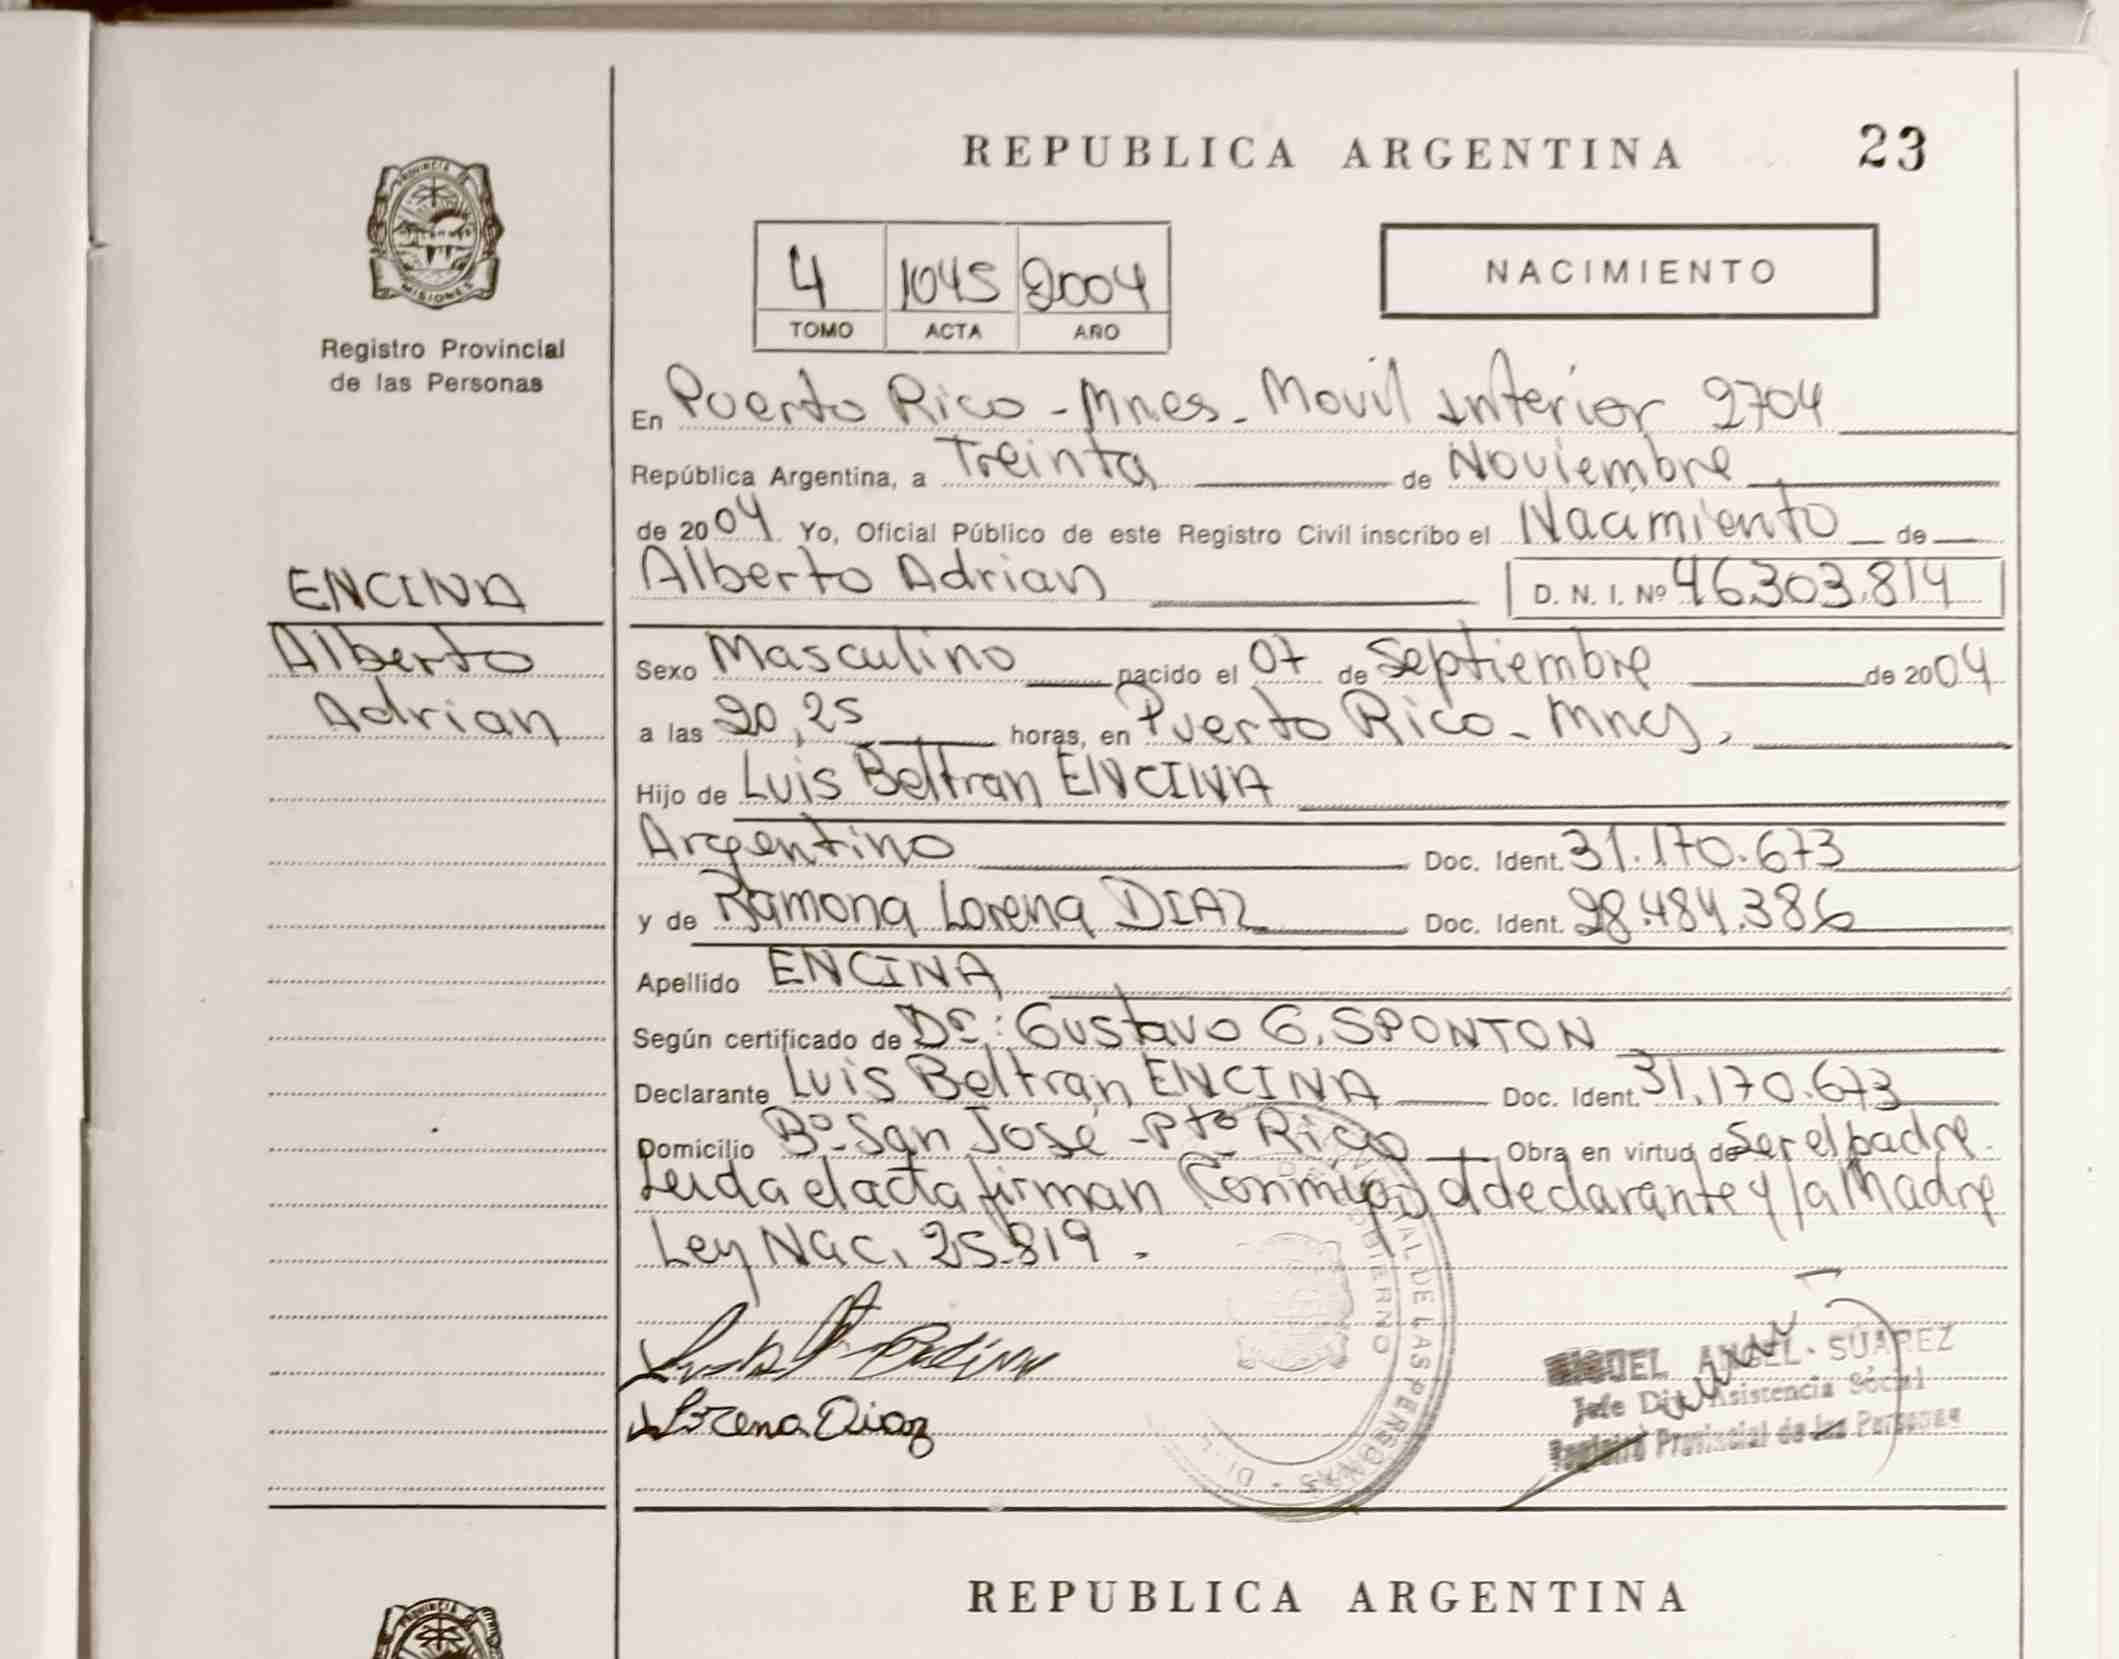 REPUBLICA ARGENTINA 23
PROVINCIA DE
MISIONES
Registro Provincial
de las Personas
4 1045 2004
TOMO ACTA AÑO
NACIMIENTO
En Puerto Rico - Mnes - Movil Interior 2704
República Argentina, a Treinta de Noviembre
de 2004 Yo, Oficial Público de este Registro Civil inscribo el Nacimiento de
Alberto Adrian D. N. I. Nº 46.303.814
ENCINA
Alberto
Adrian
Sexo Masculino nacido el 07 de Septiembre de 2004
a las 20,25 horas, en Puerto Rico - Mnes,
Hijo de Luis Beltran ENCINA
Argentino Doc. Ident. 31.170.673
y de Ramona Lorena DIAZ Doc. Ident. 28.484.386
Apellido ENCINA
Según certificado de Dr: Gustavo G. SPONTON
Declarante Luis Beltran ENCINA Doc. Ident. 31.170.673
Domicilio Bº San José - Pto Rico Obra en virtud de Ser el padre.
Leida el acta firman Conmigo el declarante y la Madre
Ley Nac. 25.819.
Lorena Diaz
MIGUEL ANGEL SUAREZ
Jefe Div. Asistencia Social
Registro Provincial de las Personas
REPUBLICA ARGENTINA
PROVINCIA